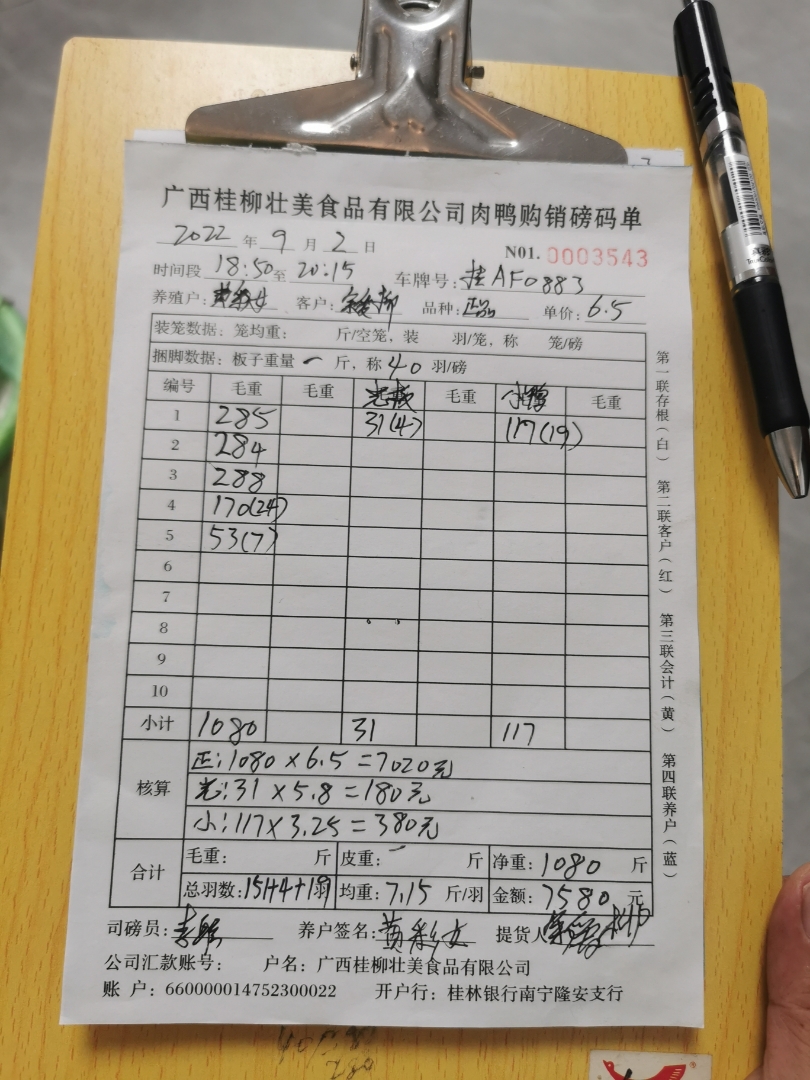 广西桂柳壮美食品有限公司肉鸭购销磅码单
2022 年 9 月 2 日 N01. 0003543
时间段 18:50 至 20:15 车牌号: 桂AF0883
养殖户: 客户: 品种: 正品 单价: 6.5
装笼数据: 笼均重: 斤/空笼, 装 羽/笼, 称 笼/磅
捆脚数据: 板子重量 一 斤, 称 40 羽/磅
编号 毛重 毛重 毛重 毛重
1 285 31(4) 117(19)
2 284
3 288
4 170(24)
5 53(7)
6
7
8
9
10
小计 1080 31 117
核算
正: 1080 × 6.5 = 7020元
光: 31 × 5.8 = 180元
小: 117 × 3.25 = 380元
合计
毛重: 斤 皮重: 斤 净重: 1080 斤
总羽数: 151+4+19 羽 均重: 7.15 斤/羽 金额: 7580 元
司磅员: 养户签名: 黄彩女 提货人
公司汇款账号: 户名: 广西桂柳壮美食品有限公司
账 户: 660000014752300022 开户行: 桂林银行南宁隆安支行
第一联存根(白) 第二联客户(红) 第三联会计(黄) 第四联养户(蓝)